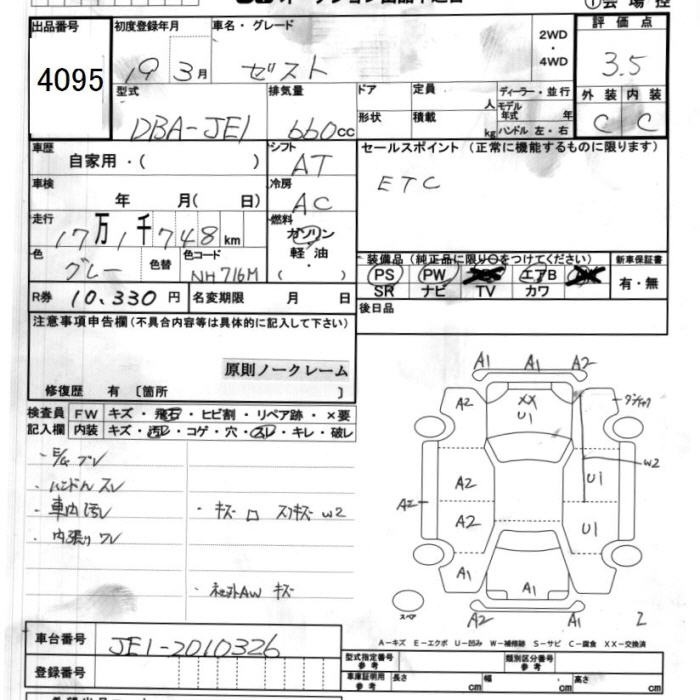 出品番号 初度登録年月 車名・グレード 2WD・4WD 評価点
4095 19 3月 ゼスト 3.5
型式 排気量 ドア 定員 人 ディーラー・並行 外装 内装
DBA-JE1 660cc 形状 積載 kg モデル年式 年 ハンドル 左・右 C C
車歴 シフト セールスポイント (正常に機能するものに限ります)
自家用・( ) AT
車検 冷房 ETC
年 月( 日) AC
走行 燃料
17万1千748km ガソリン
色 色替 色コード 軽油 装備品 (純正品に限り○をつけてください) 新車保証書
グレー NH716M ( ・ ) PS PW エアB 有・無
R券 10,330円 名変期限 月 日 SR ナビ TV カワ
注意事項申告欄(不具合内容等は具体的に記入して下さい) 後日品
原則ノークレーム
修復歴 有 〔箇所 〕
検査員 FW キズ・飛石・ヒビ割・リペア跡・×要
記入欄 内装 キズ・汚レ・コゲ・穴・スレ・キレ・破レ
ハンドル スレ
・車内 汚レ ・キズ
内張り ワレ
・社外AW キズ
A1 A1 A2
A2 XX U1
W2
A2 A2 U1
A2 U1
A1 A1
スペア A2 A1 2
A-キズ E-エクボ U-凹み W-補修跡 S-サビ C-腐食 XX-交換済
車台番号 JE1-2010326 型式指定番号 参考 類別区分番号 参考
登録番号 車庫証明用 参考 長さ cm 幅 cm 高さ cm